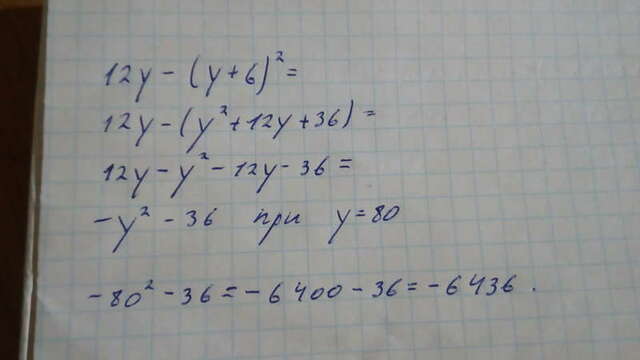 12y - (y+6)² =
12y - (y² + 12y + 36) =
12y - y² - 12y - 36 =
- y² - 36 при y = 80
- 80² - 36 = - 6400 - 36 = - 6436 .